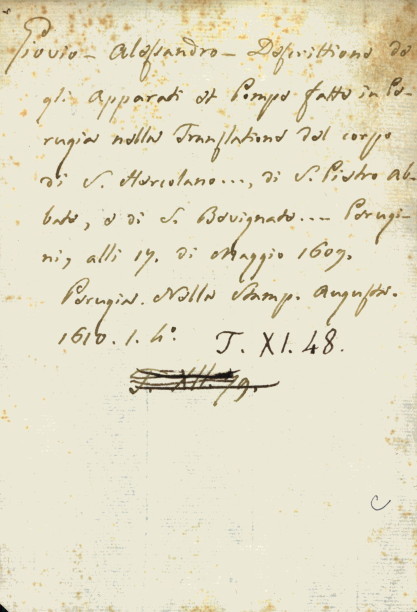 Giovio - Alessandro - Descrittione de
gli Apparati et Pompe fatte in Pe-
rugia nella Translatione del corpo
di S. Hercolano..., di S. Pietro Ab-
bate, e di S. Bevignate.... Perugi-
ni, alli 17. di Maggio 1609.
Perugia. Nella Stamp. Augusta.
1610. 1. 4°.
T. XI. 48.
T. XII. 79.
C